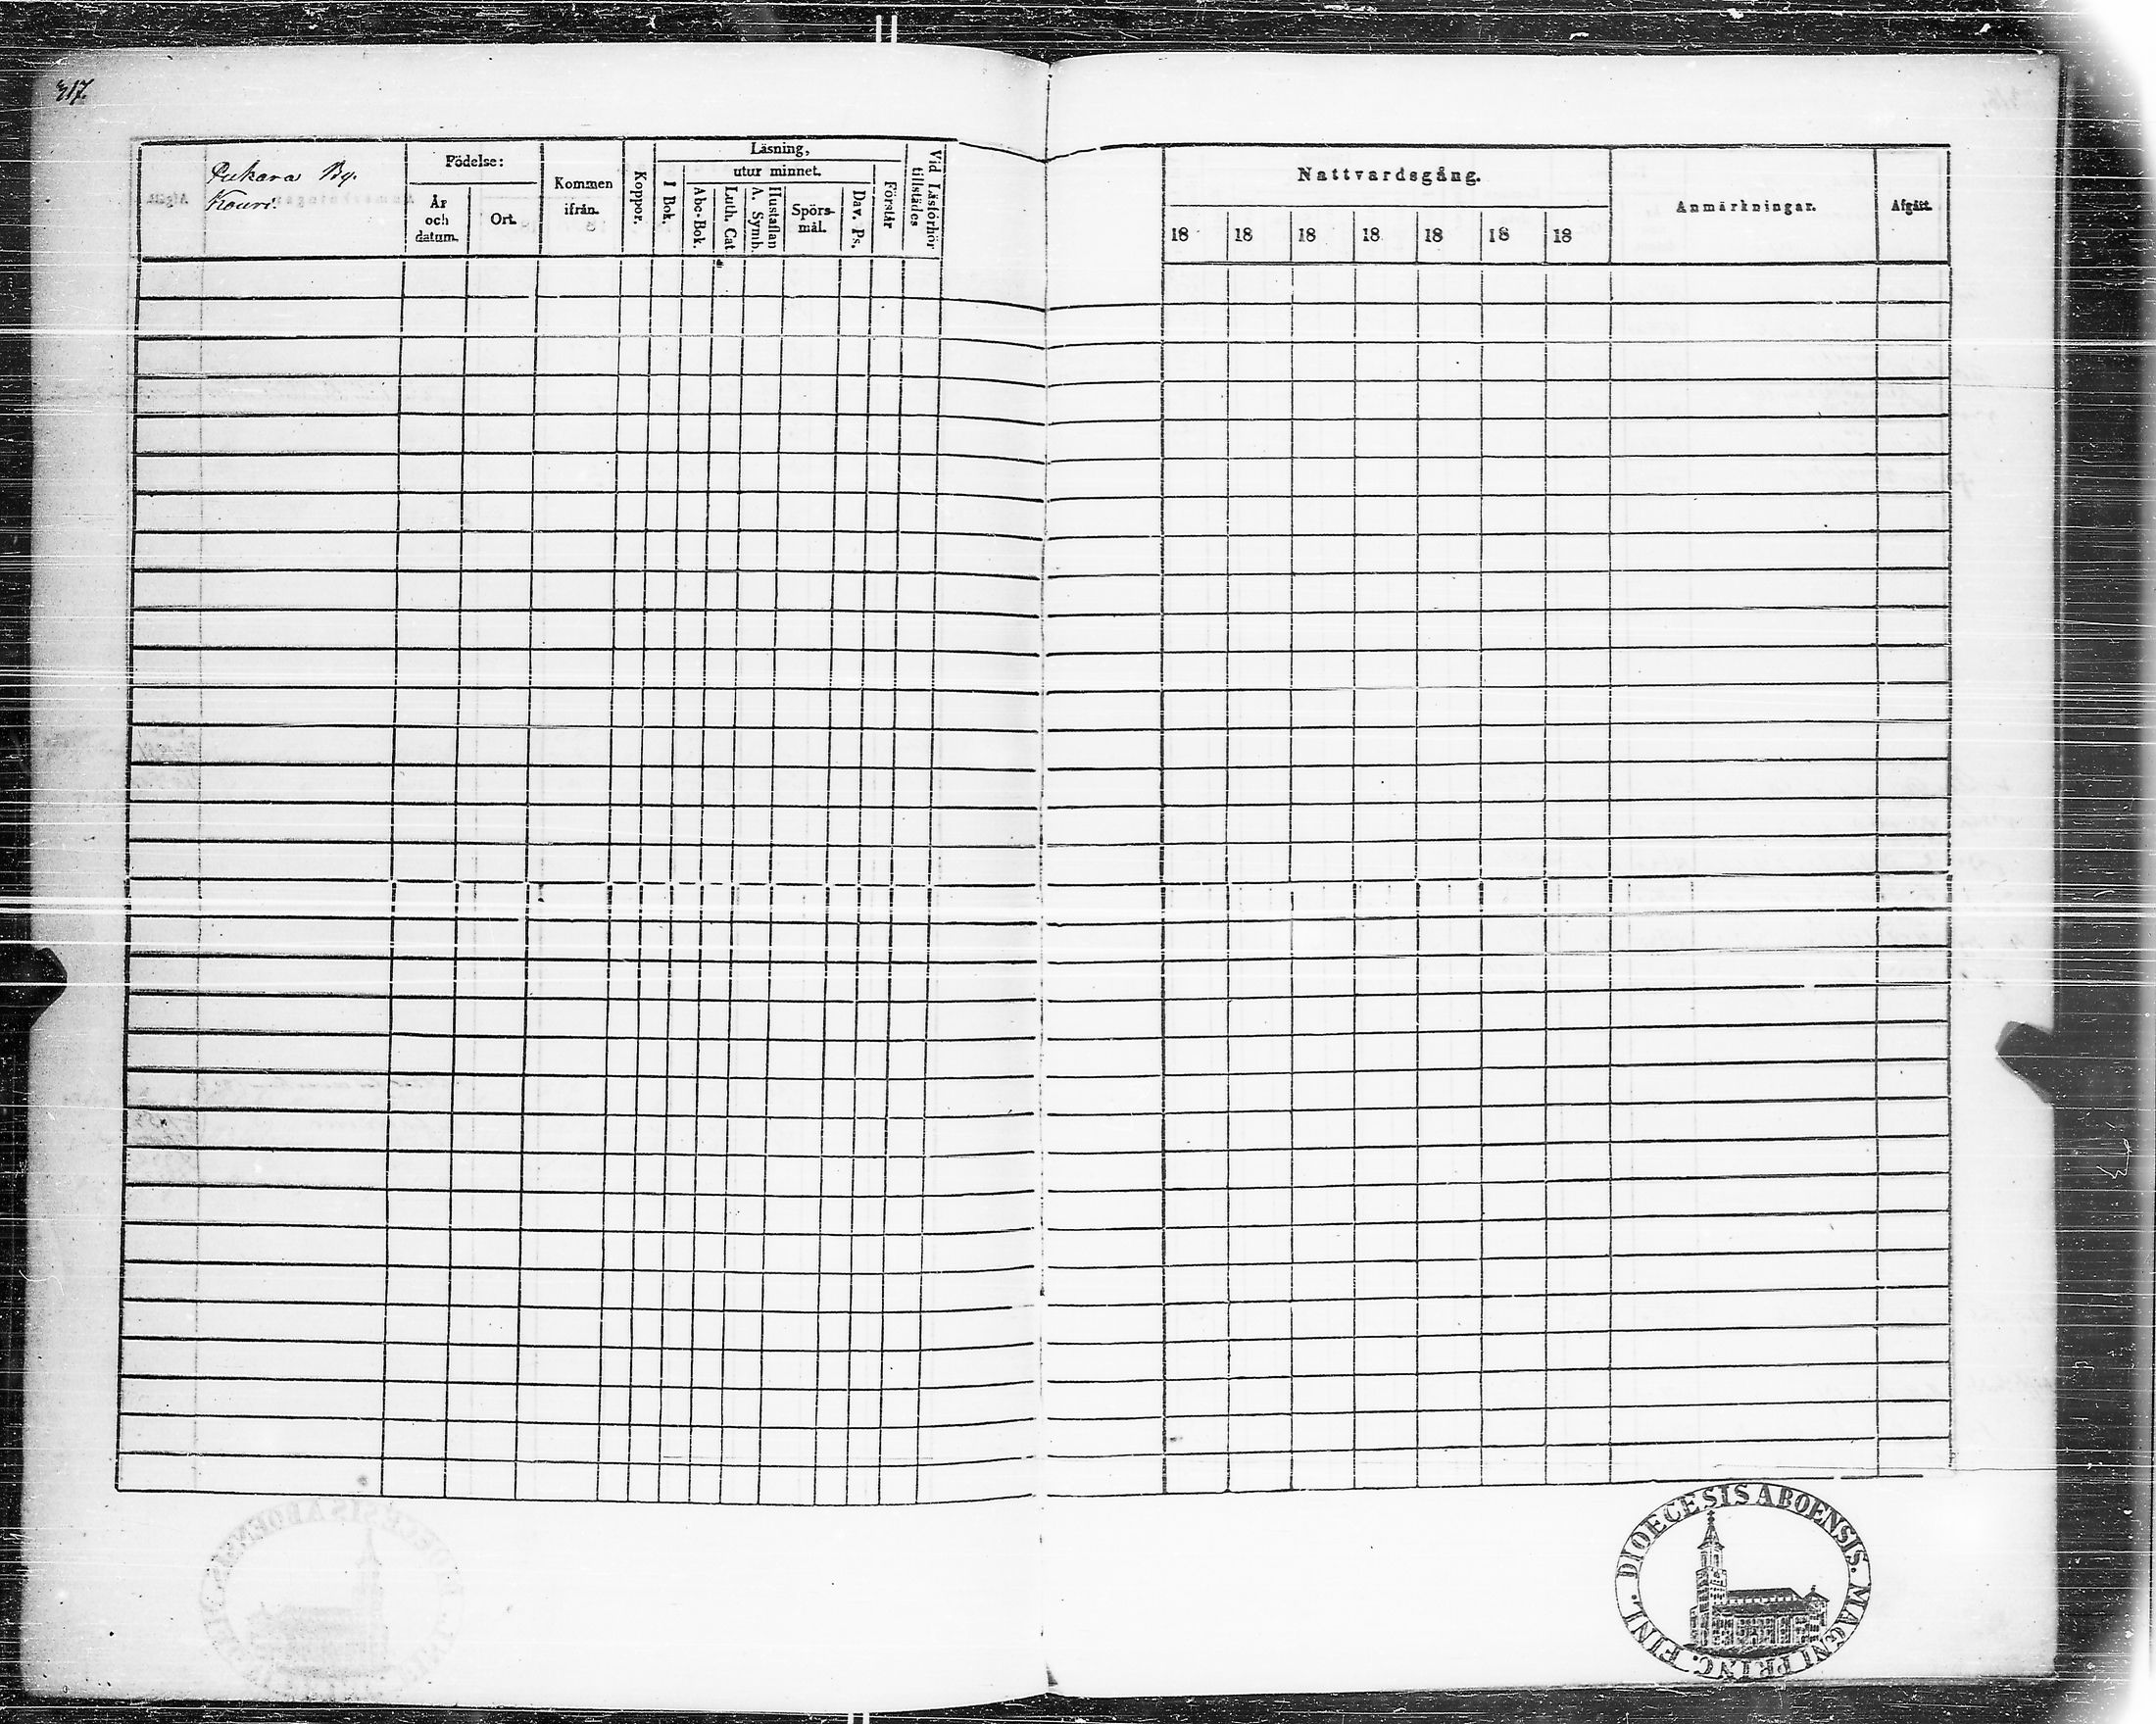 317.
Pukara By.
Kouri.
Födelse:
År
och
datum.
Ort.
Kommen
ifrån.
Koppor.
Läsning,
utur minnet.
I Bok.
Abc-Bok.
Luth. Cat.
Hustaflan
A. Symb.
Spörs-
mål.
Dav. Ps.
Förstår
Vid Läsförhör
tillstädes
Nattvardsgång.
18 18 18 18 18 18 18
Anmärkningar.
Afgått.
DIOECESIS ABOENSIS. MAGNI PRINC. FINL.